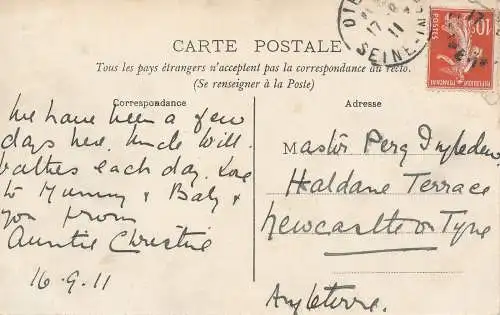 CARTE POSTALE
Tous les pays étrangers n'acceptent pas la correspondance au recto.
(Se renseigner à la Poste)
Correspondance
We have been a few
days here. Uncle Will
bathes each day. Love
to Mummy & Baby &
you from
Auntie Christine
16.9.11
Adresse
Master Percy Ingledew
Haldane Terrace
Newcastle on Tyne
Angleterre.
17
11
SEINE-INF
10c
POSTES